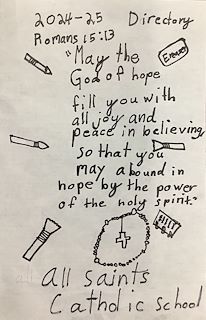 2024-25 Directory
Romans 15:13
"May the
God of hope
Eraser
fill you with
all joy and
peace in believing
so that you
may abound in
hope by the power
of the holy spirit."
all saints
Catholic school